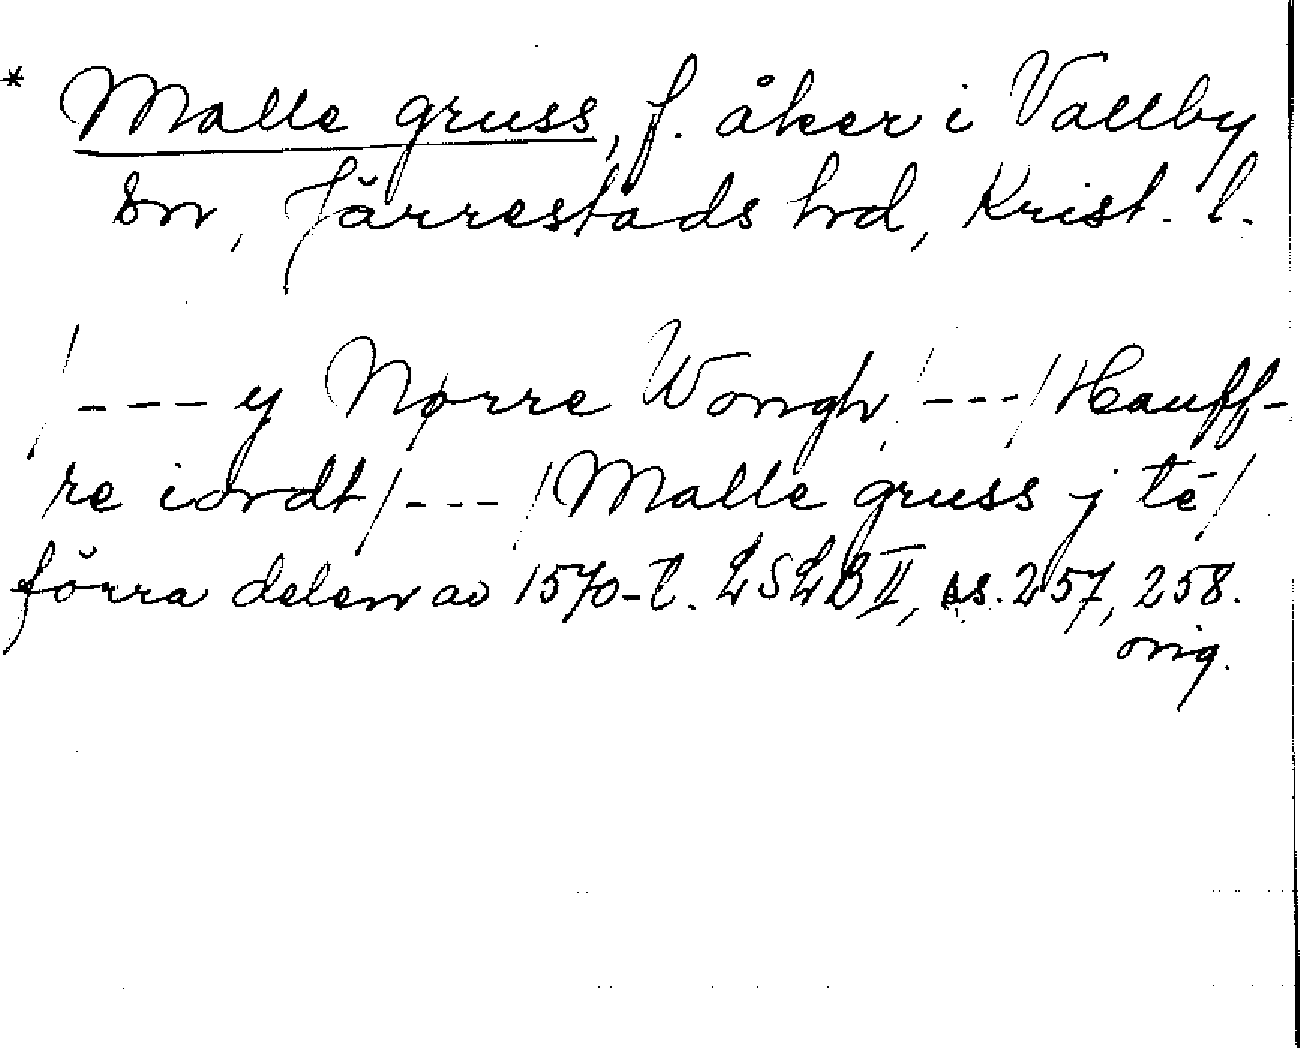 * Malle gruss, f. åker i Vallby
sn, Järrestads hd, Krist. l.
/---y Nørre Wongh/---/Hauff-
re iordt/---/Malle gruss j té/
förra delen av 1570-t. LSLB II, ss. 257, 258.
orig.